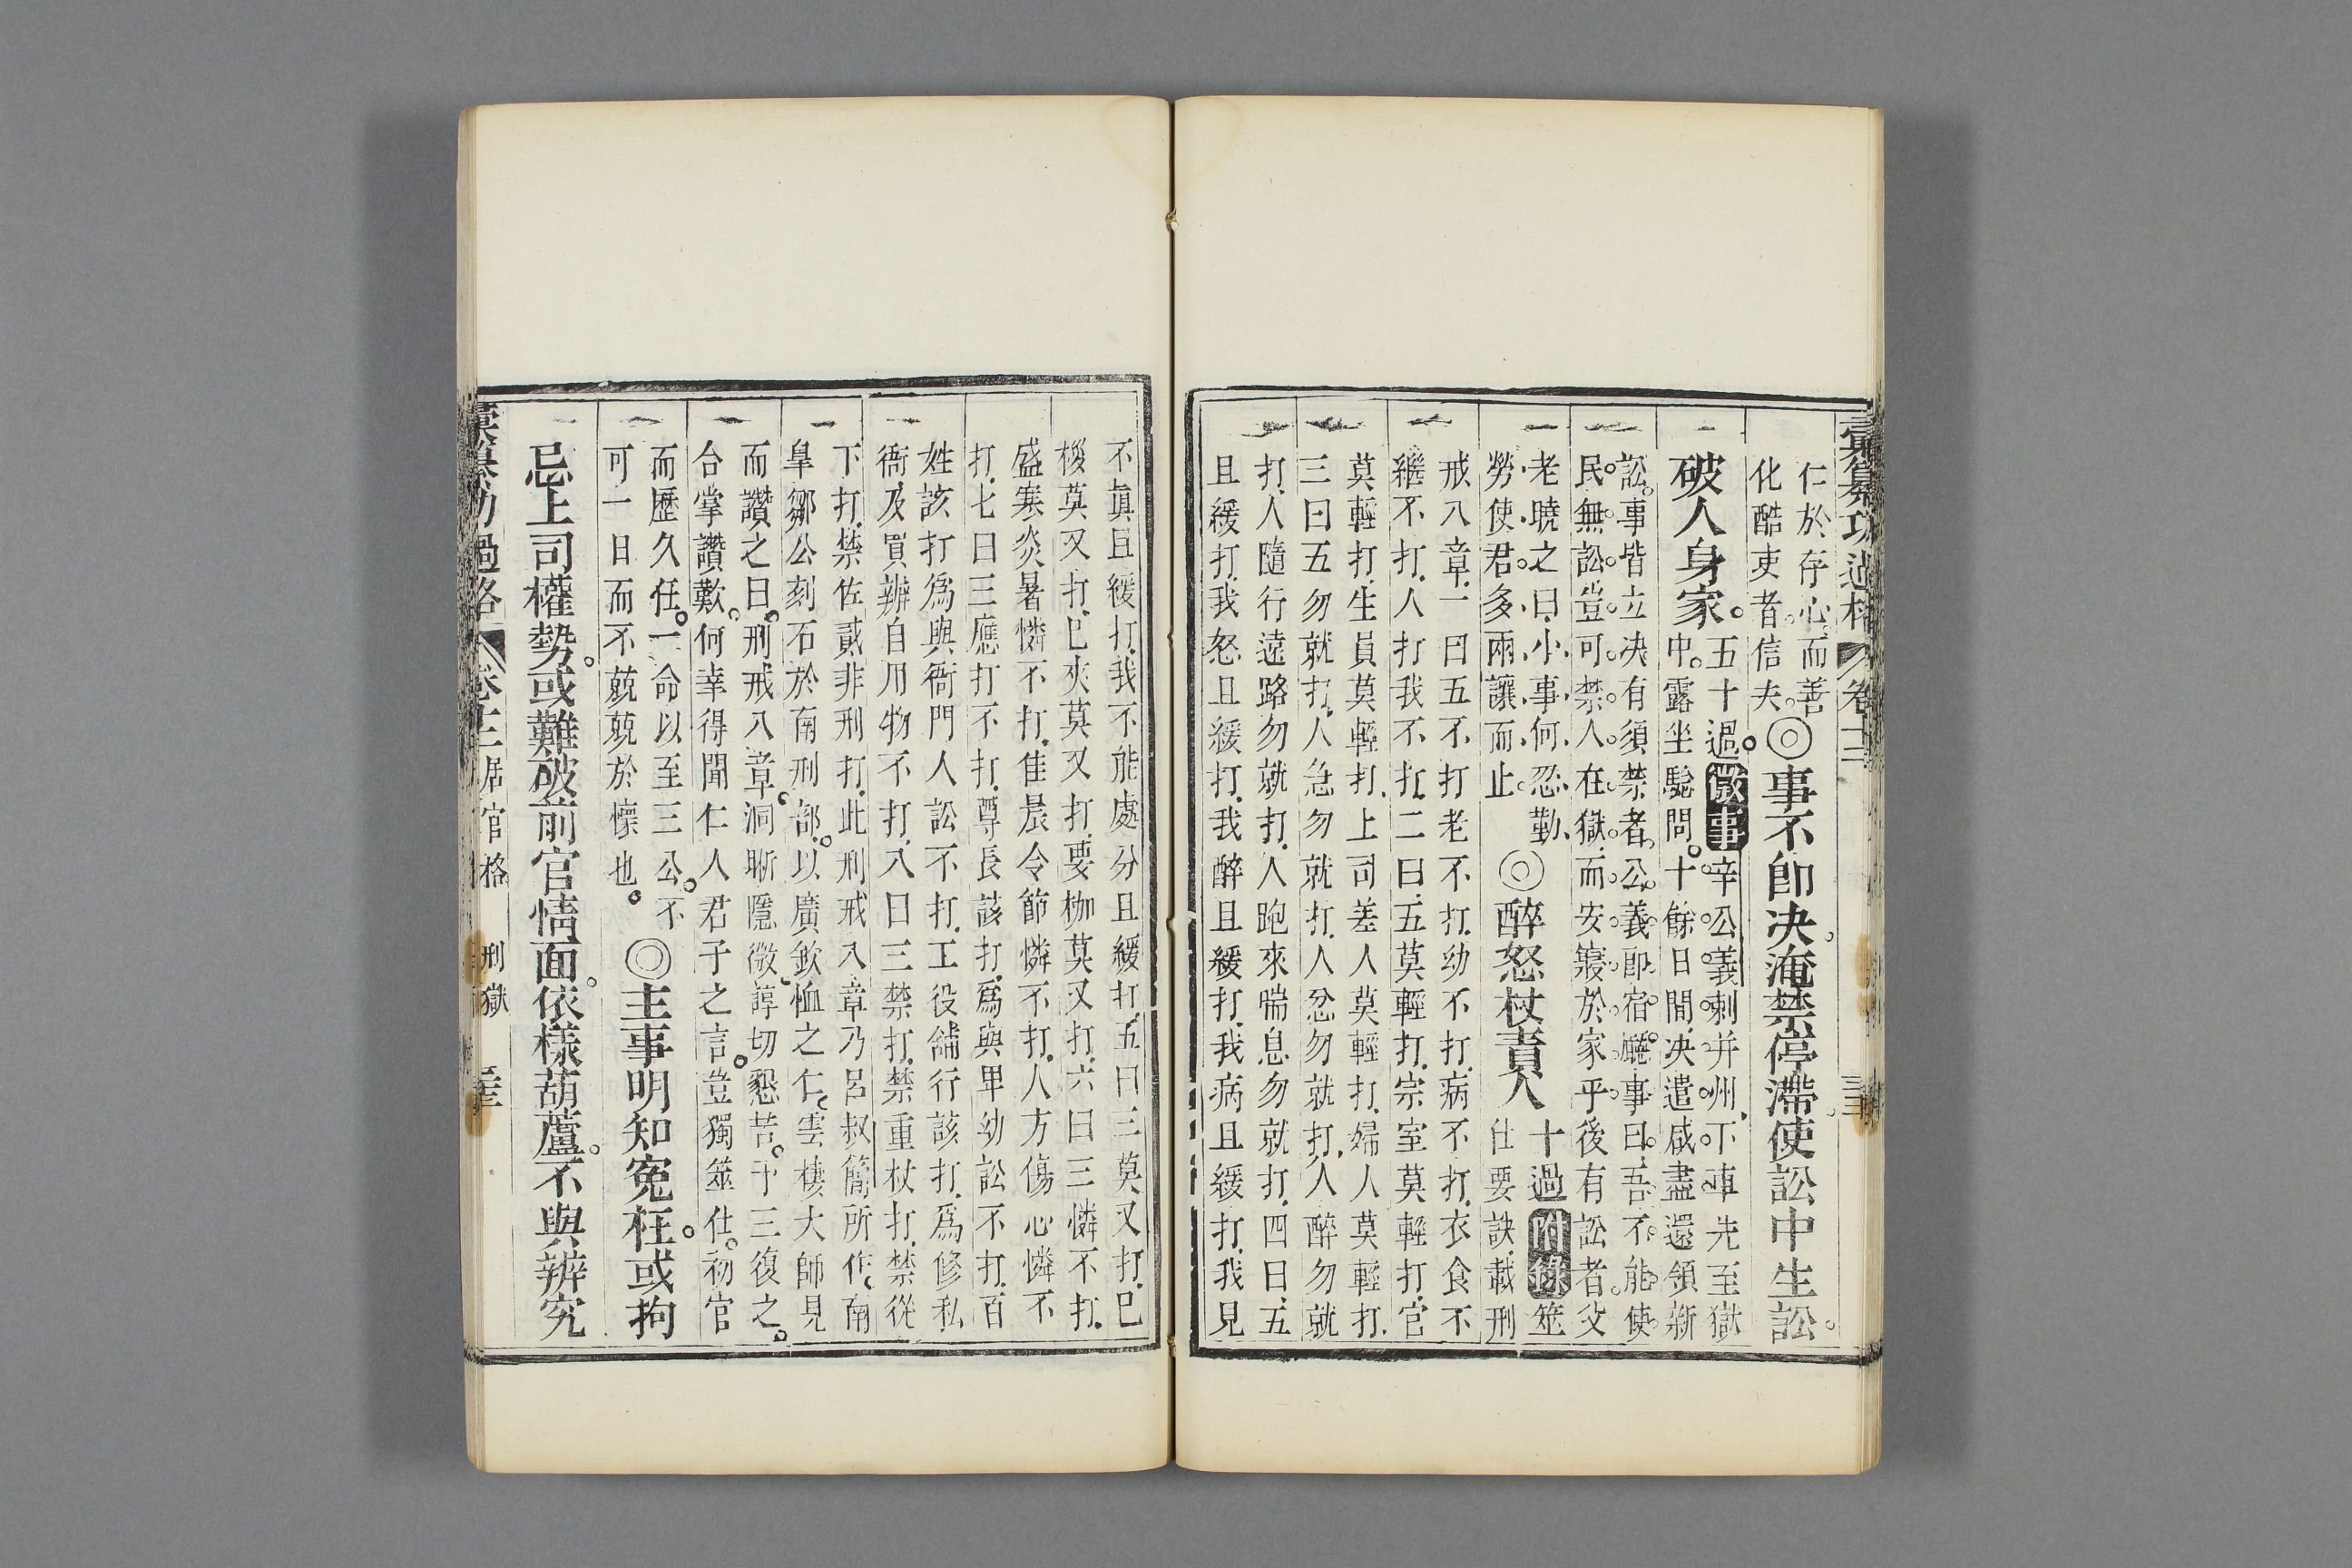 彙纂功過格 卷十二
仁於存心而善
化酷吏者信夫
◎事不卽决淹禁停滯使訟中生訟
破人身家
五十過徵事辛公義刺并州下車先至獄
中露坐騐問十餘日間决遣咸盡還領新
訟事皆立决有須禁者公義卽宿廳事曰吾不能使
民無訟豈可禁人在獄而安寢於家乎後有訟者父
老曉之曰小事何忍勤
勞使君多兩讓而止
◎醉怒杖責人
十過附錄筮
仕要訣載刑
戒八章一曰五不打老不打幼不打病不打衣食不
繼不打人打我不打二曰五莫輕打宗室莫輕打官
莫輕打生員莫輕打上司差人莫輕打婦人莫輕打
三曰五勿就打人急勿就打人忿勿就打人醉勿就
打人隨行遠路勿就打人跑來喘息勿就打四曰五
且緩打我怒且緩打我醉且緩打我病且緩打我見
不眞且緩打我不能處分且緩打五曰三莫又打已
桚莫又打已夾莫又打要枷莫又打六曰三憐不打
盛寒炎暑憐不打佳晨令節憐不打人方傷心憐不
打七曰三應打不打尊長該打爲與卑幼訟不打百
姓該打爲與衙門人訟不打工役舖行該打爲修私
衙及買辦自用物不打八曰三禁打禁重杖打禁從
下打禁佐貳非刑打此刑戒八章乃呂叔簡所作南
臯鄒公刻石於南刑部以廣欽恤之仁雲棲大師見
而讚之曰刑戒八章洞晰隱微諄切懇苦予三復之
合掌讚歎何幸得聞仁人君子之言豈獨筮仕初官
而歷久任一命以至三公不
可一日而不兢兢於懷也
◎主事明知寃枉或拘
忌上司權勢或難破前官情面依樣葫蘆不與辨究
彙纂功過格 卷十二居官格 刑獄